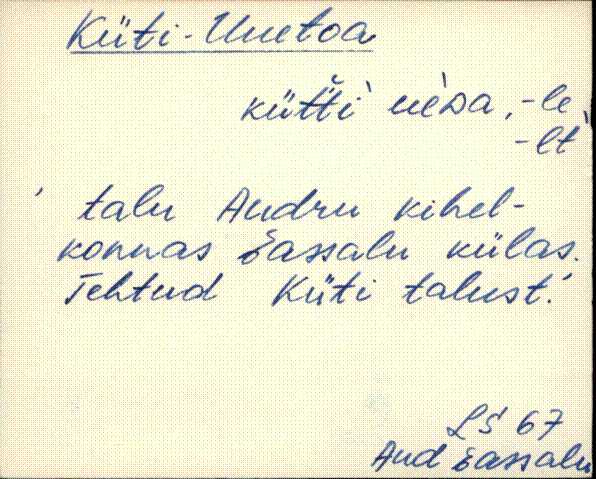 Küti-Uuetoa
küťťi ùeᴅa, -le
-lt
talu Audru kihel-
konnas Eassalu külas.
Tehtud Küti talust.
LS 67
Aud Eassalu